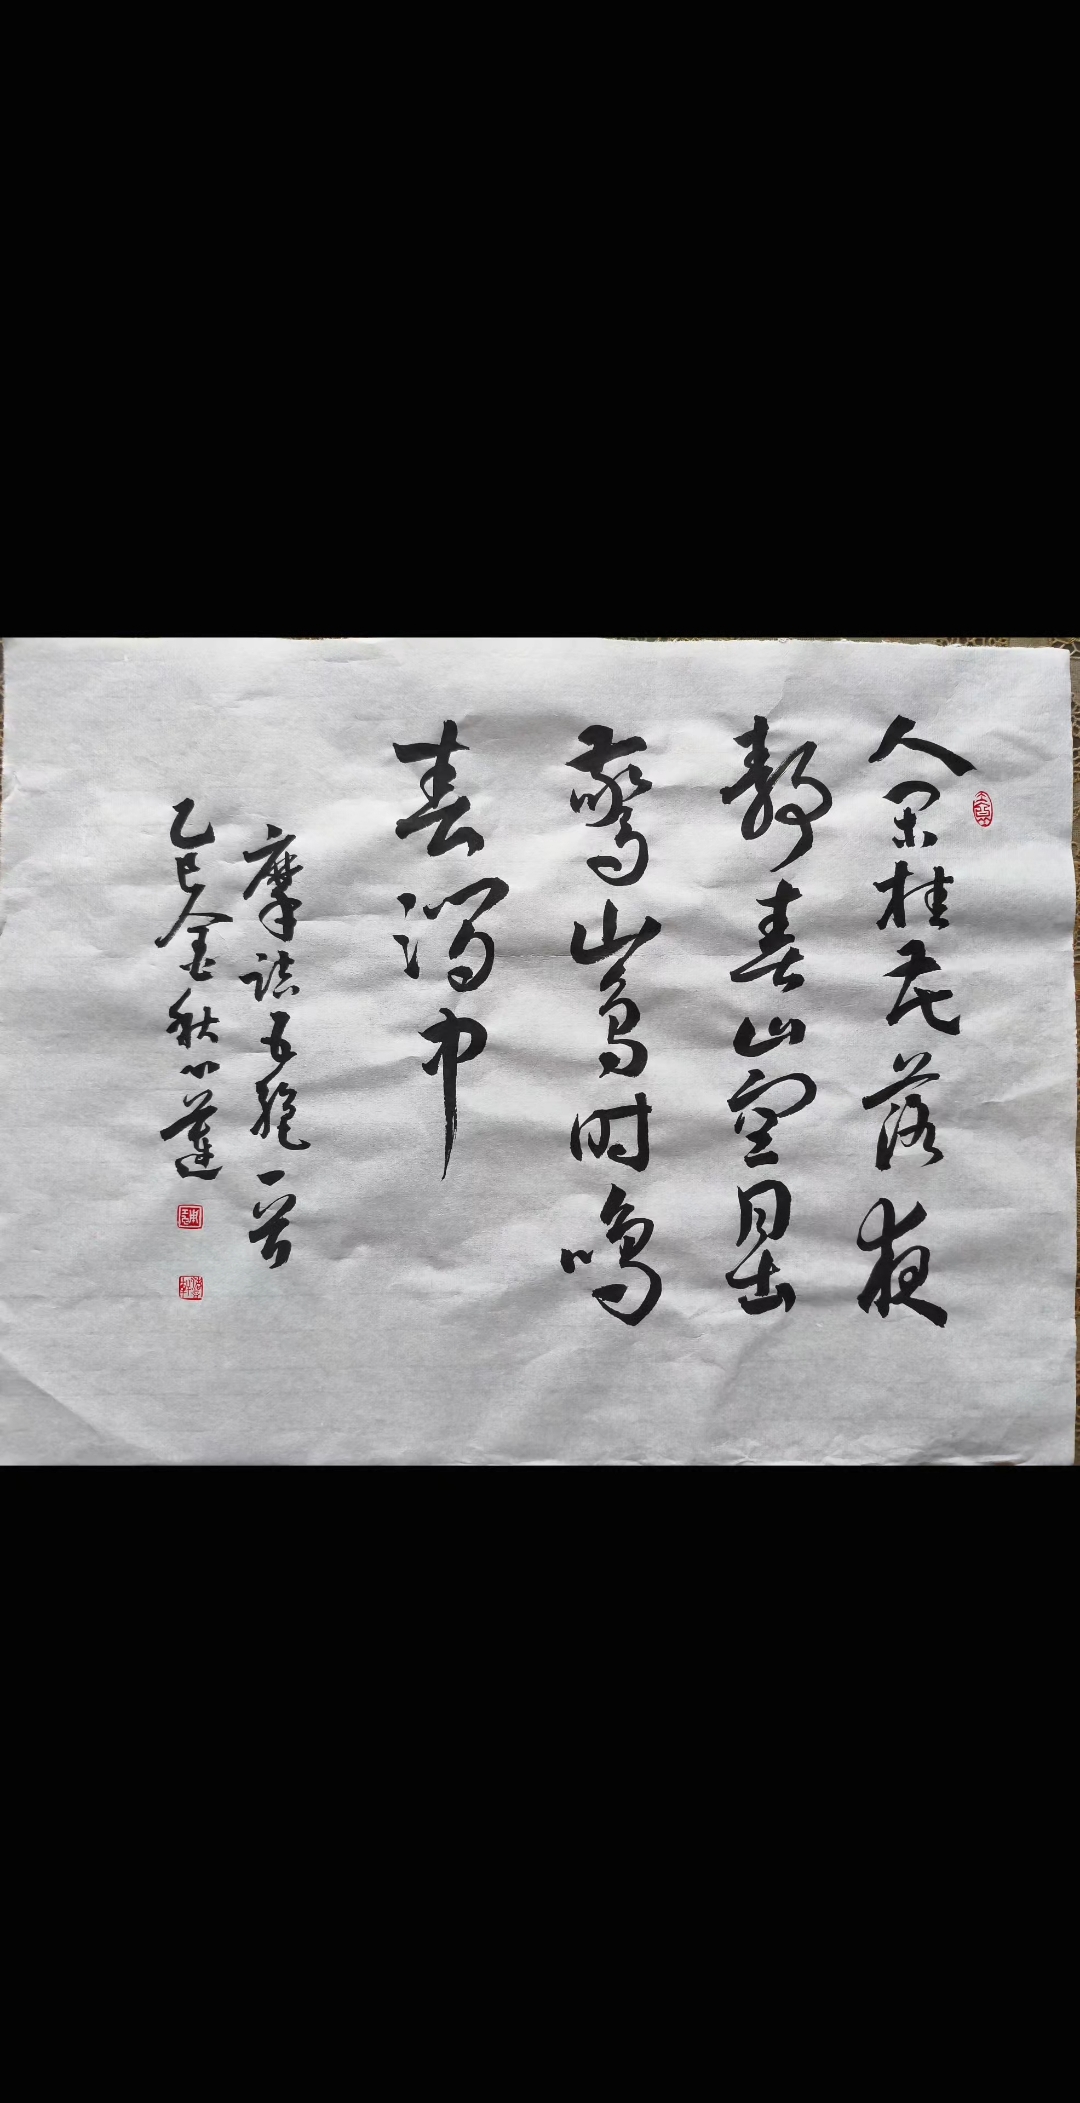 人闲桂花落夜
静春山空月出
惊山鸟时鸣
春涧中
摩诘五绝一首
乙巳金秋小莲